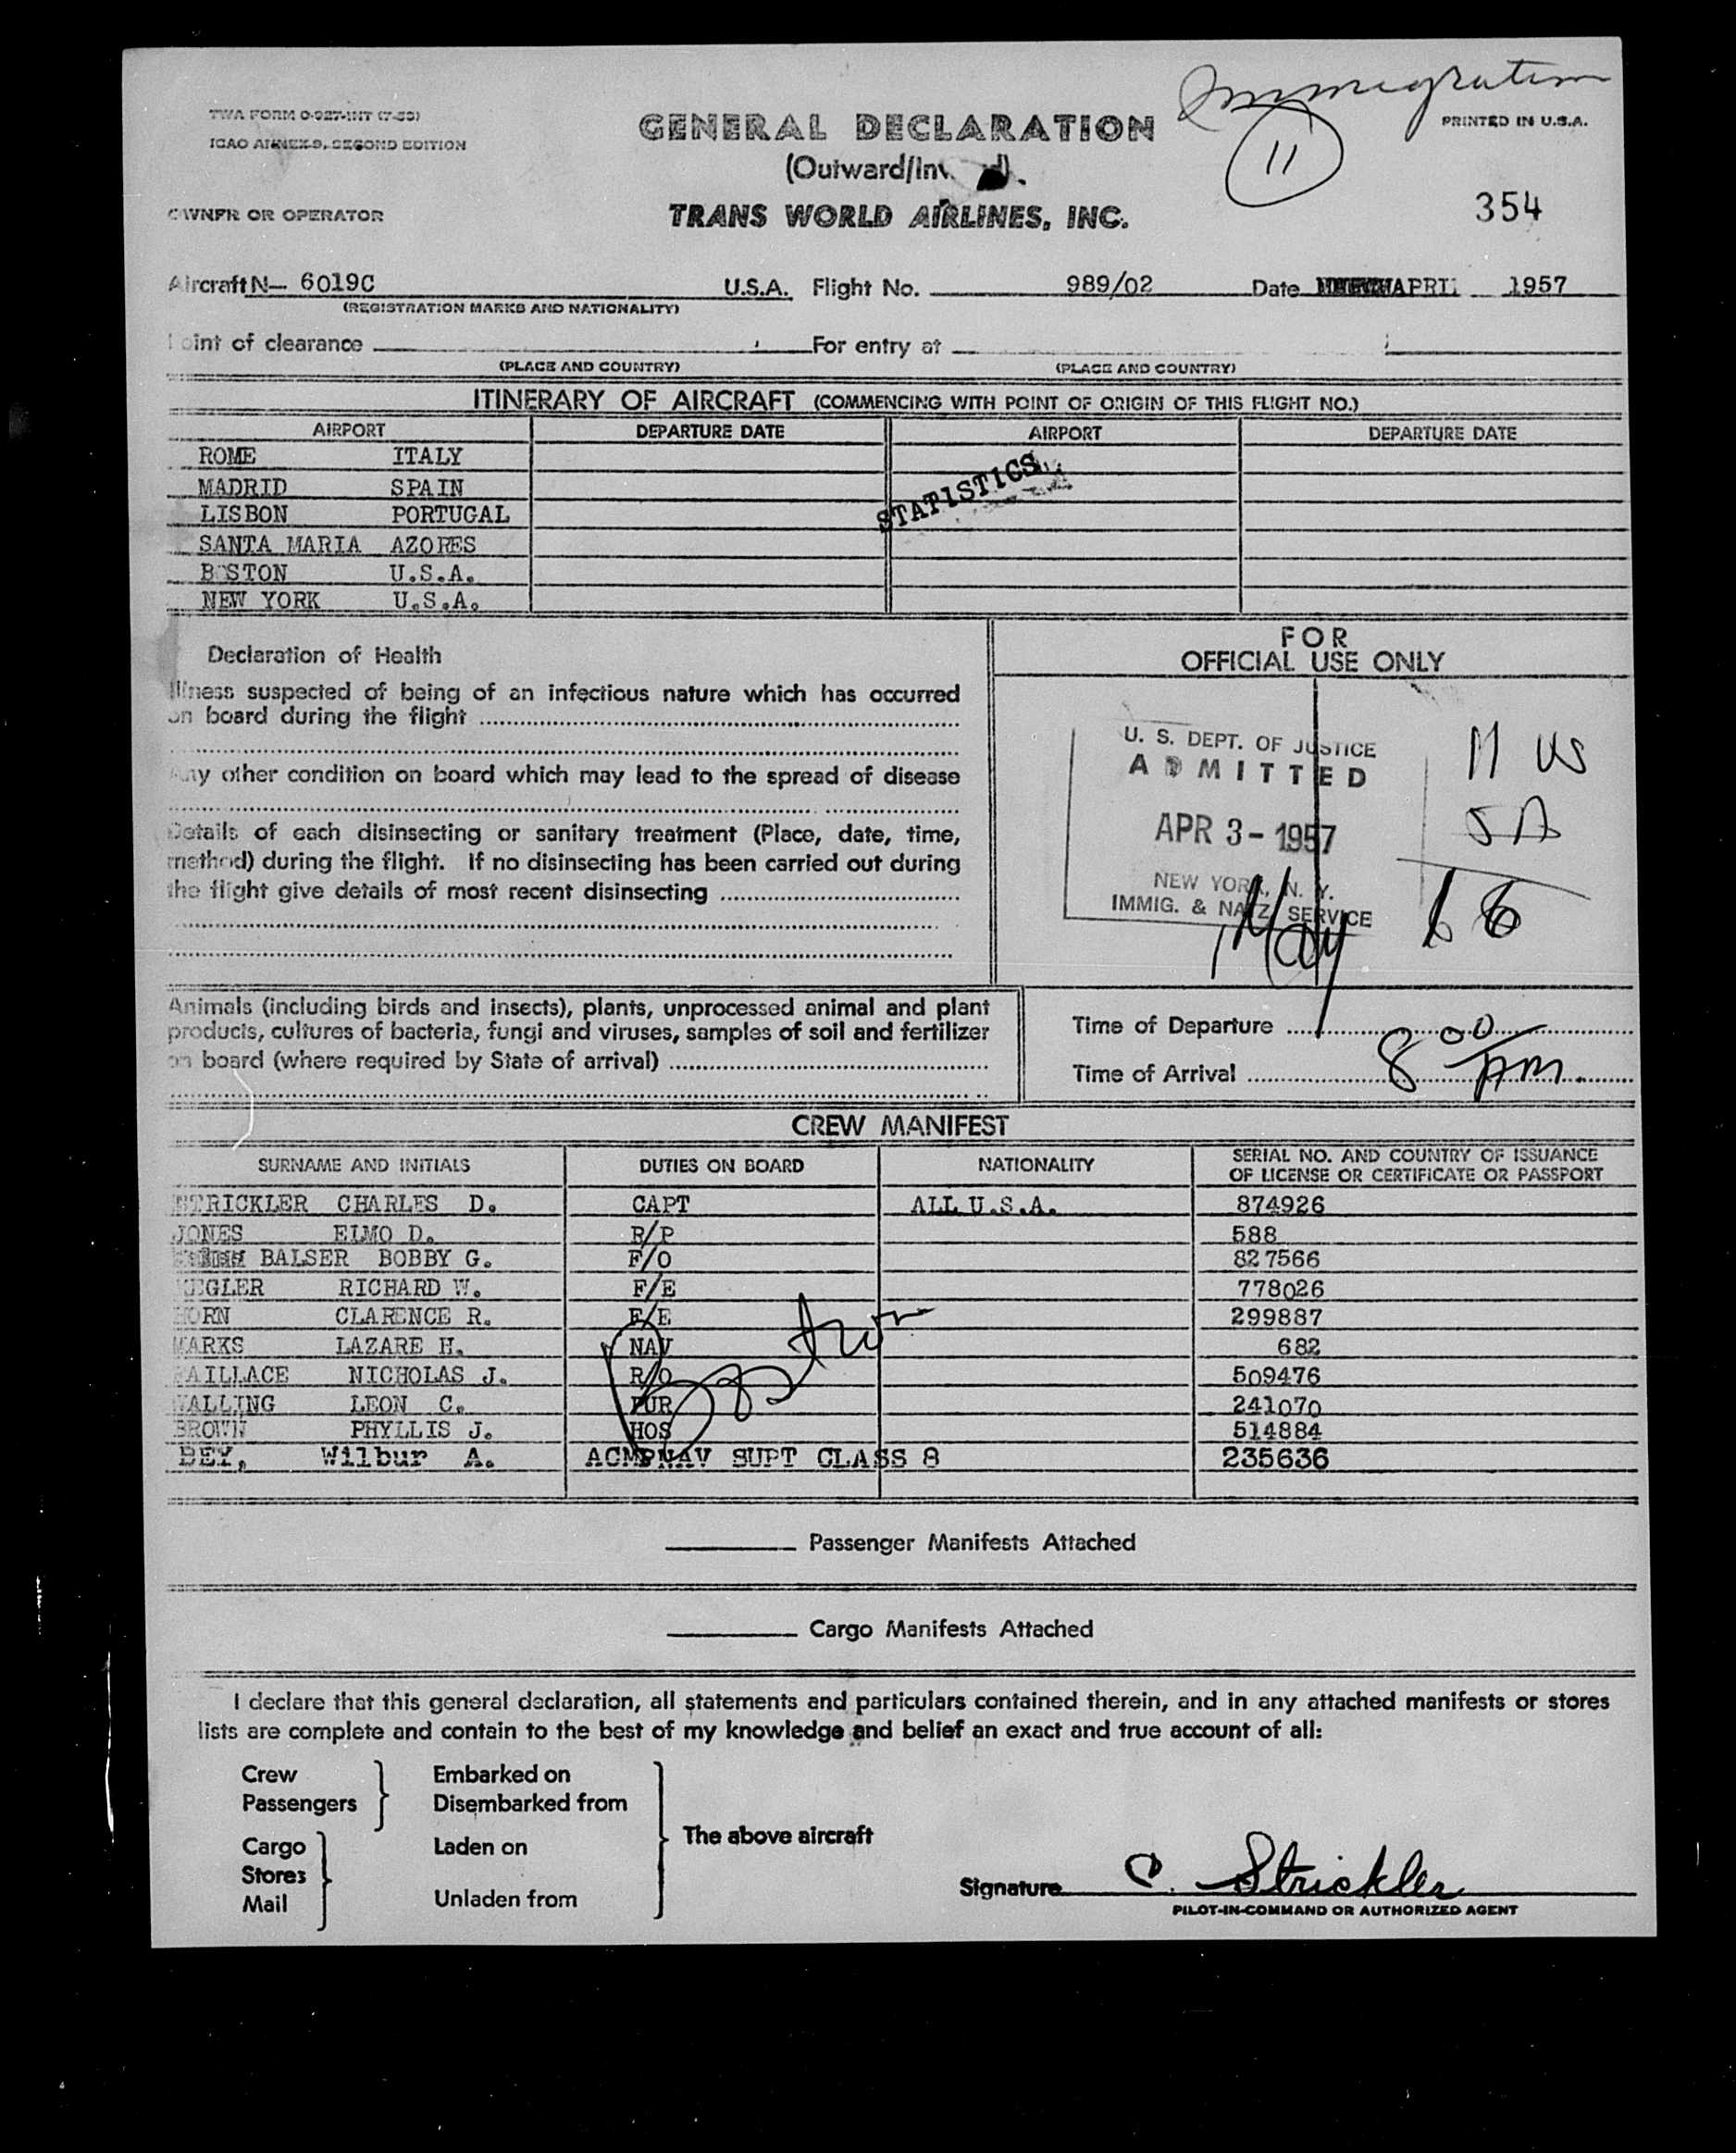 Immigration
11
TWA FORM O-927-INT (7-53)
ICAO ANNEX 9, SECOND EDITION
PRINTED IN U.S.A.
GENERAL DECLARATION
(Outward/Inw d).
OWNER OR OPERATOR
TRANS WORLD AIRLINES, INC.
354
Aircraft N— 6019C U.S.A. Flight No. 989/02 Date APRIL 1957
(REGISTRATION MARKS AND NATIONALITY)
Point of clearance , For entry at ,
(PLACE AND COUNTRY) (PLACE AND COUNTRY)
ITINERARY OF AIRCRAFT (COMMENCING WITH POINT OF ORIGIN OF THIS FLIGHT NO.)
AIRPORT DEPARTURE DATE AIRPORT DEPARTURE DATE
ROME ITALY
MADRID SPAIN
STATISTICS
LISBON PORTUGAL
SANTA MARIA AZORES
BOSTON U.S.A.
NEW YORK U.S.A.
Declaration of Health
Illness suspected of being of an infectious nature which has occurred
on board during the flight
Any other condition on board which may lead to the spread of disease
Details of each disinsecting or sanitary treatment (Place, date, time,
method) during the flight. If no disinsecting has been carried out during
the flight give details of most recent disinsecting
FOR
OFFICIAL USE ONLY
U. S. DEPT. OF JUSTICE
ADMITTED
APR 3 - 1957
NEW YORK, N. Y.
IMMIG. & NATZ. SERVICE
11 US
5 A
16
Animals (including birds and insects), plants, unprocessed animal and plant
products, cultures of bacteria, fungi and viruses, samples of soil and fertilizer
on board (where required by State of arrival)
Time of Departure
Time of Arrival 8 00 PM.
CREW MANIFEST
SURNAME AND INITIALS DUTIES ON BOARD NATIONALITY SERIAL NO. AND COUNTRY OF ISSUANCE
OF LICENSE OR CERTIFICATE OR PASSPORT
STRICKLER CHARLES D. CAPT ALL U.S.A. 874926
JONES ELMO D. R/P 588
BALSER BOBBY G. F/O 827566
KEGLER RICHARD W. F/E 778026
HORN CLARENCE R. F/E 299887
MARKS LAZARE H. NAV 682
RAILLACE NICHOLAS J. R/O 509476
WALLING LEON C. PUR 241070
BROWN PHYLLIS J. HOS 514884
BEY, Wilbur A. ACM NAV SUPT CLASS 8 235636
Boston
Passenger Manifests Attached
Cargo Manifests Attached
I declare that this general declaration, all statements and particulars contained therein, and in any attached manifests or stores
lists are complete and contain to the best of my knowledge and belief an exact and true account of all:
Crew
Passengers
Cargo
Stores
Mail
Embarked on
Disembarked from
Laden on
Unladen from
The above aircraft
Signature C. Strickler
PILOT-IN-COMMAND OR AUTHORIZED AGENT